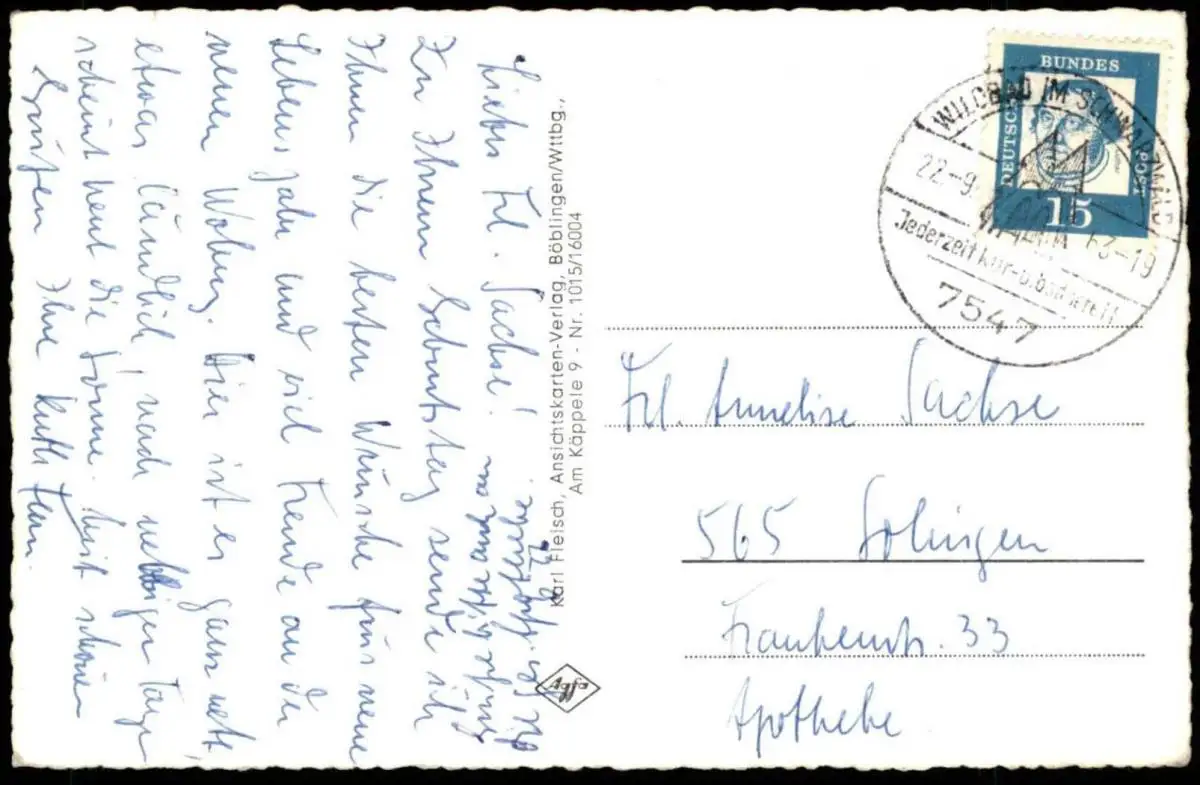 Liebes Frl. Sachse!
Zu Ihrem Geburtstag sende ich
Ihnen die besten Wünsche fürs neue
Lebensjahr und viel Freude an der
neuen Wohng. Hier ist es ganz nett,
etwas ländlich, nach nebligen Tagen
scheint heut die Sonne. Mit schönen
Grüßen Ihre Ruth
22.9.
Karl Fleisch, Ansichtskarten-Verlag, Böblingen/Wttbg.,
Am Käppele 9 - Nr. 1015/16004
Agfa
DEUTSCHE
BUNDES
POST
15
WILDBAD IM SCHWARZWALD
22.-9. 63-19
Jederzeit kur- u. badbereit
7547
Frl. Annelise Sachse
565 Solingen
Frankenstr. 33
Apotheke